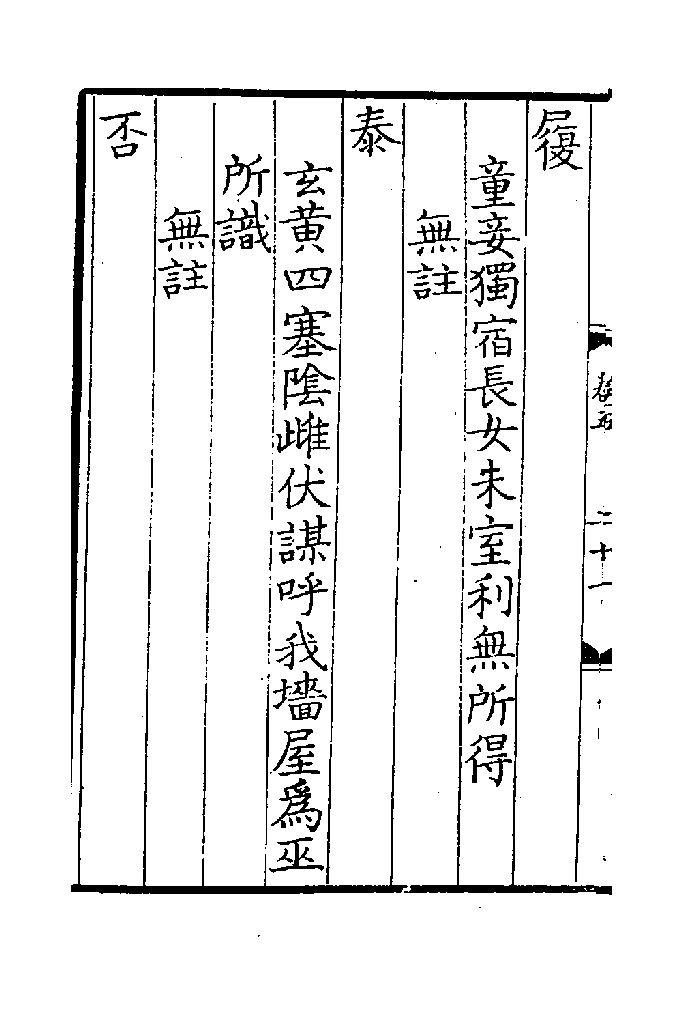 履
童妾獨宿長女未室利無所得
無註
泰
玄黄四塞陰雌伏謀呼我墻屋爲巫
所識
無註
否
卷五
二十一